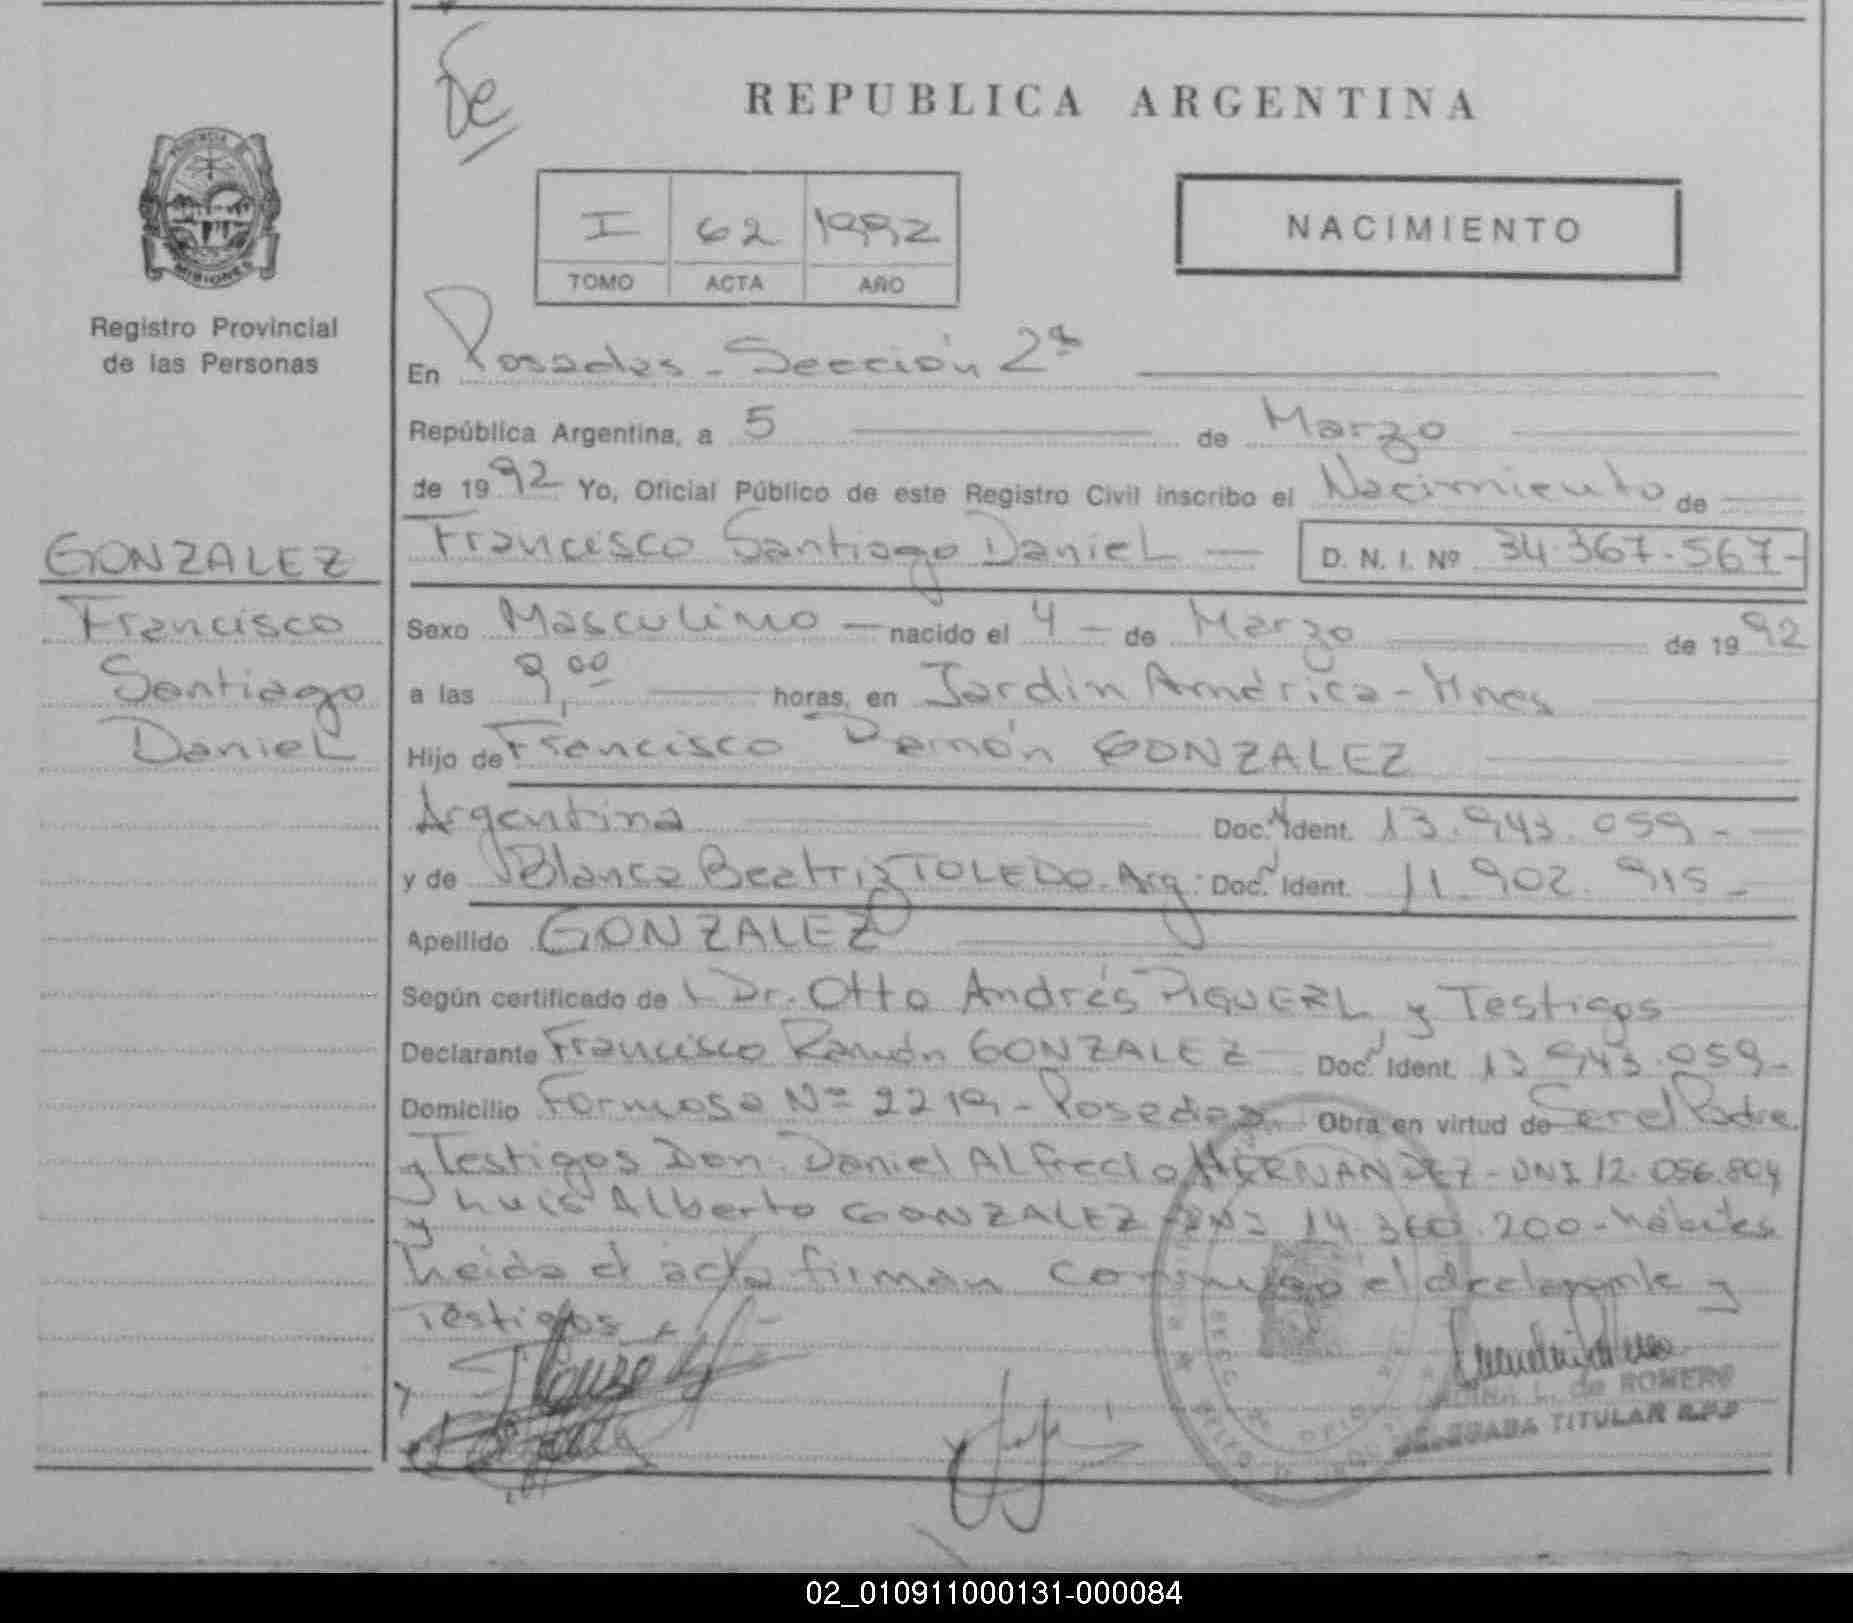 De
REPUBLICA ARGENTINA
PROVINCIA
MISIONES
Registro Provincial
de las Personas
I 62 1992
TOMO ACTA AÑO
NACIMIENTO
En Posadas - Sección 2ª
República Argentina, a 5 de Marzo
de 1992 Yo, Oficial Público de este Registro Civil inscribo el Nacimiento de
Francisco Santiago Daniel — D. N. I. Nº 34.367.567-
GONZALEZ
Francisco
Santiago
Daniel
Sexo Masculino — nacido el 4 — de Marzo de 1992
a las 9,00 horas, en Jardín América - Mnes
Hijo de Francisco Ramón GONZALEZ
Argentina Doc. Ident. 13.943.059-
y de Blanca Beatriz TOLEDO. Arg. Doc. Ident. 11.902.915-
Apellido GONZALEZ
Según certificado de Dr. Otto Andrés y Testigos
Declarante Francisco Ramón GONZALEZ Doc. Ident. 13.943.059-
Domicilio Formosa Nº 2219 - Posadas Obra en virtud de Ser el Padre
y Testigos Don. Daniel Alfredo HERNANDEZ - DNI 12.056.804
y Luis Alberto GONZALEZ DNI 14.360.200 - hábiles
Leida el acta firman conmigo el declarante y
Testigos
L. de ROMERO
DELEGADA TITULAR R.P.P
02_010911000131-000084